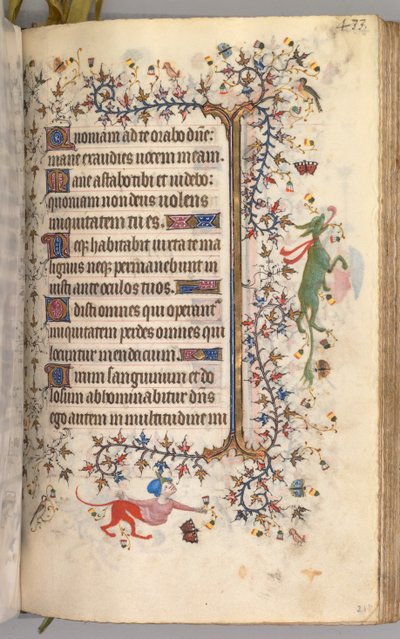 473.
Quoniam ad te orabo dñe:
mane exaudies uocem meam.
Mane astabo tibi et uidebo:
quoniam non deus uolens
iniquitatem tu es.
Neqꝫ habitabit iuxta te ma
lignus neqꝫ permanebunt in
iusti ante oculos tuos.
Odisti omnes qui operant᷑
iniquitatem perdes omnes qui
locuntur mendacium.
Uirum sanguinum et do
losum abhominabitur dñs
ego autem in multitudine mi